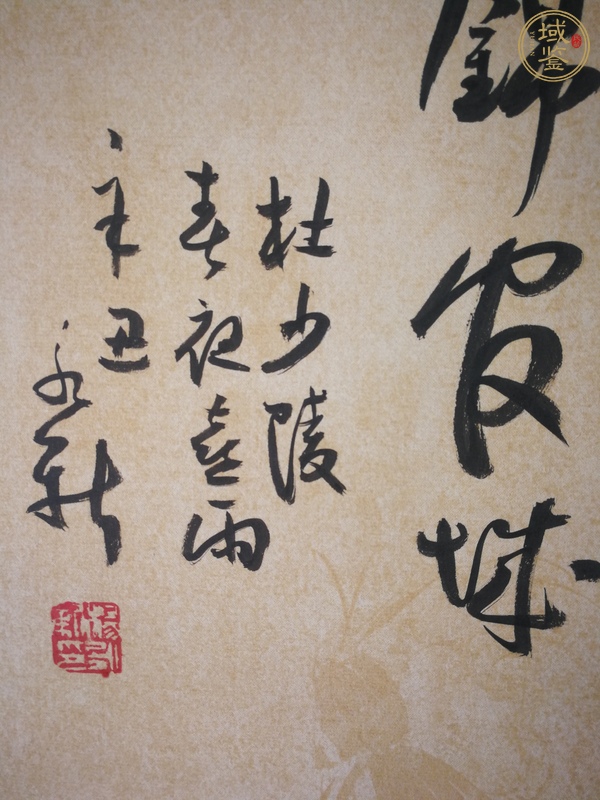 錦官城
杜少陵
春夜喜雨
辛丑
永新
域鉴